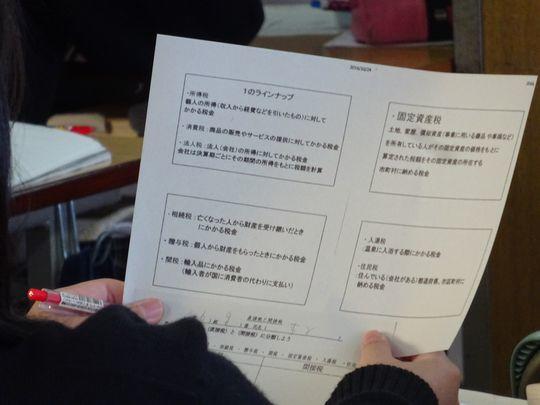 2016/10/24
1のラインナップ
・所得税
個人の所得(収入から経費などを引いたもの)に対して
かかる税金
・消費税:商品の販売やサービスの提供に対してかかる税金
・法人税:法人(会社)の所得に対してかかる税金
会社は決算期ごとにその期間の所得をもとに税額を計算
・固定資産税
土地、家屋、償却資産(事業に用いる備品や事務など)
を所有している人がその固定資産の価格をもとに
算定された税額をその固定資産の所在する
市町村に納める税金
・相続税:亡くなった人から財産を受け継いだとき
にかかる税金
・贈与税:個人から財産をもらったときにかかる税金
・関税:輸入品にかかる税金
(輸入者が国に消費者の代わりに支払い)
・入湯税
:温泉に入浴する際にかかる税金
・住民税
:住んでいる(会社がある)都道府県、市区町村に
納める税金
直接税と間接税
(直接税)と(間接税)に分類しよう
・贈与税・関税・固定資産税・入湯税
間接税